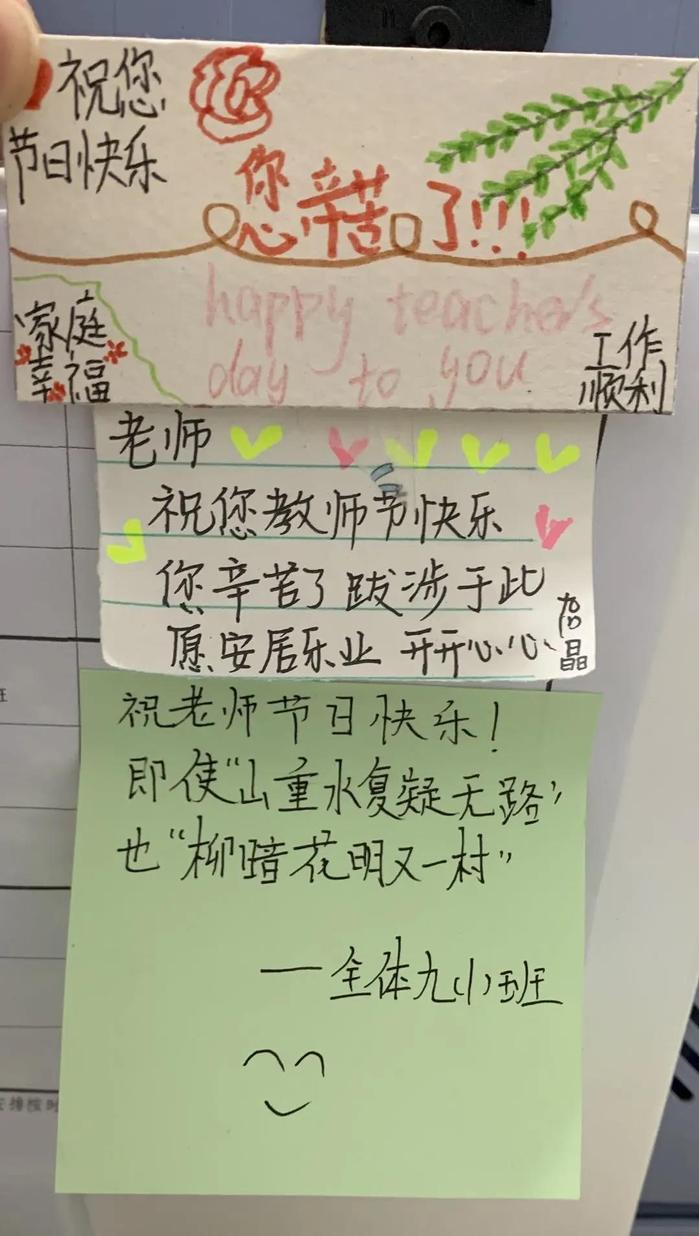 祝您
节日快乐
您辛苦了!!!
happy teacher's
day to you
家庭
幸福
工作
顺利
老师
祝您教师节快乐
您辛苦了 跋涉于此
愿安居乐业 开开心心
晶
祝老师节日快乐!
即使“山重水复疑无路”
也“柳暗花明又一村”
——全体九(1)班